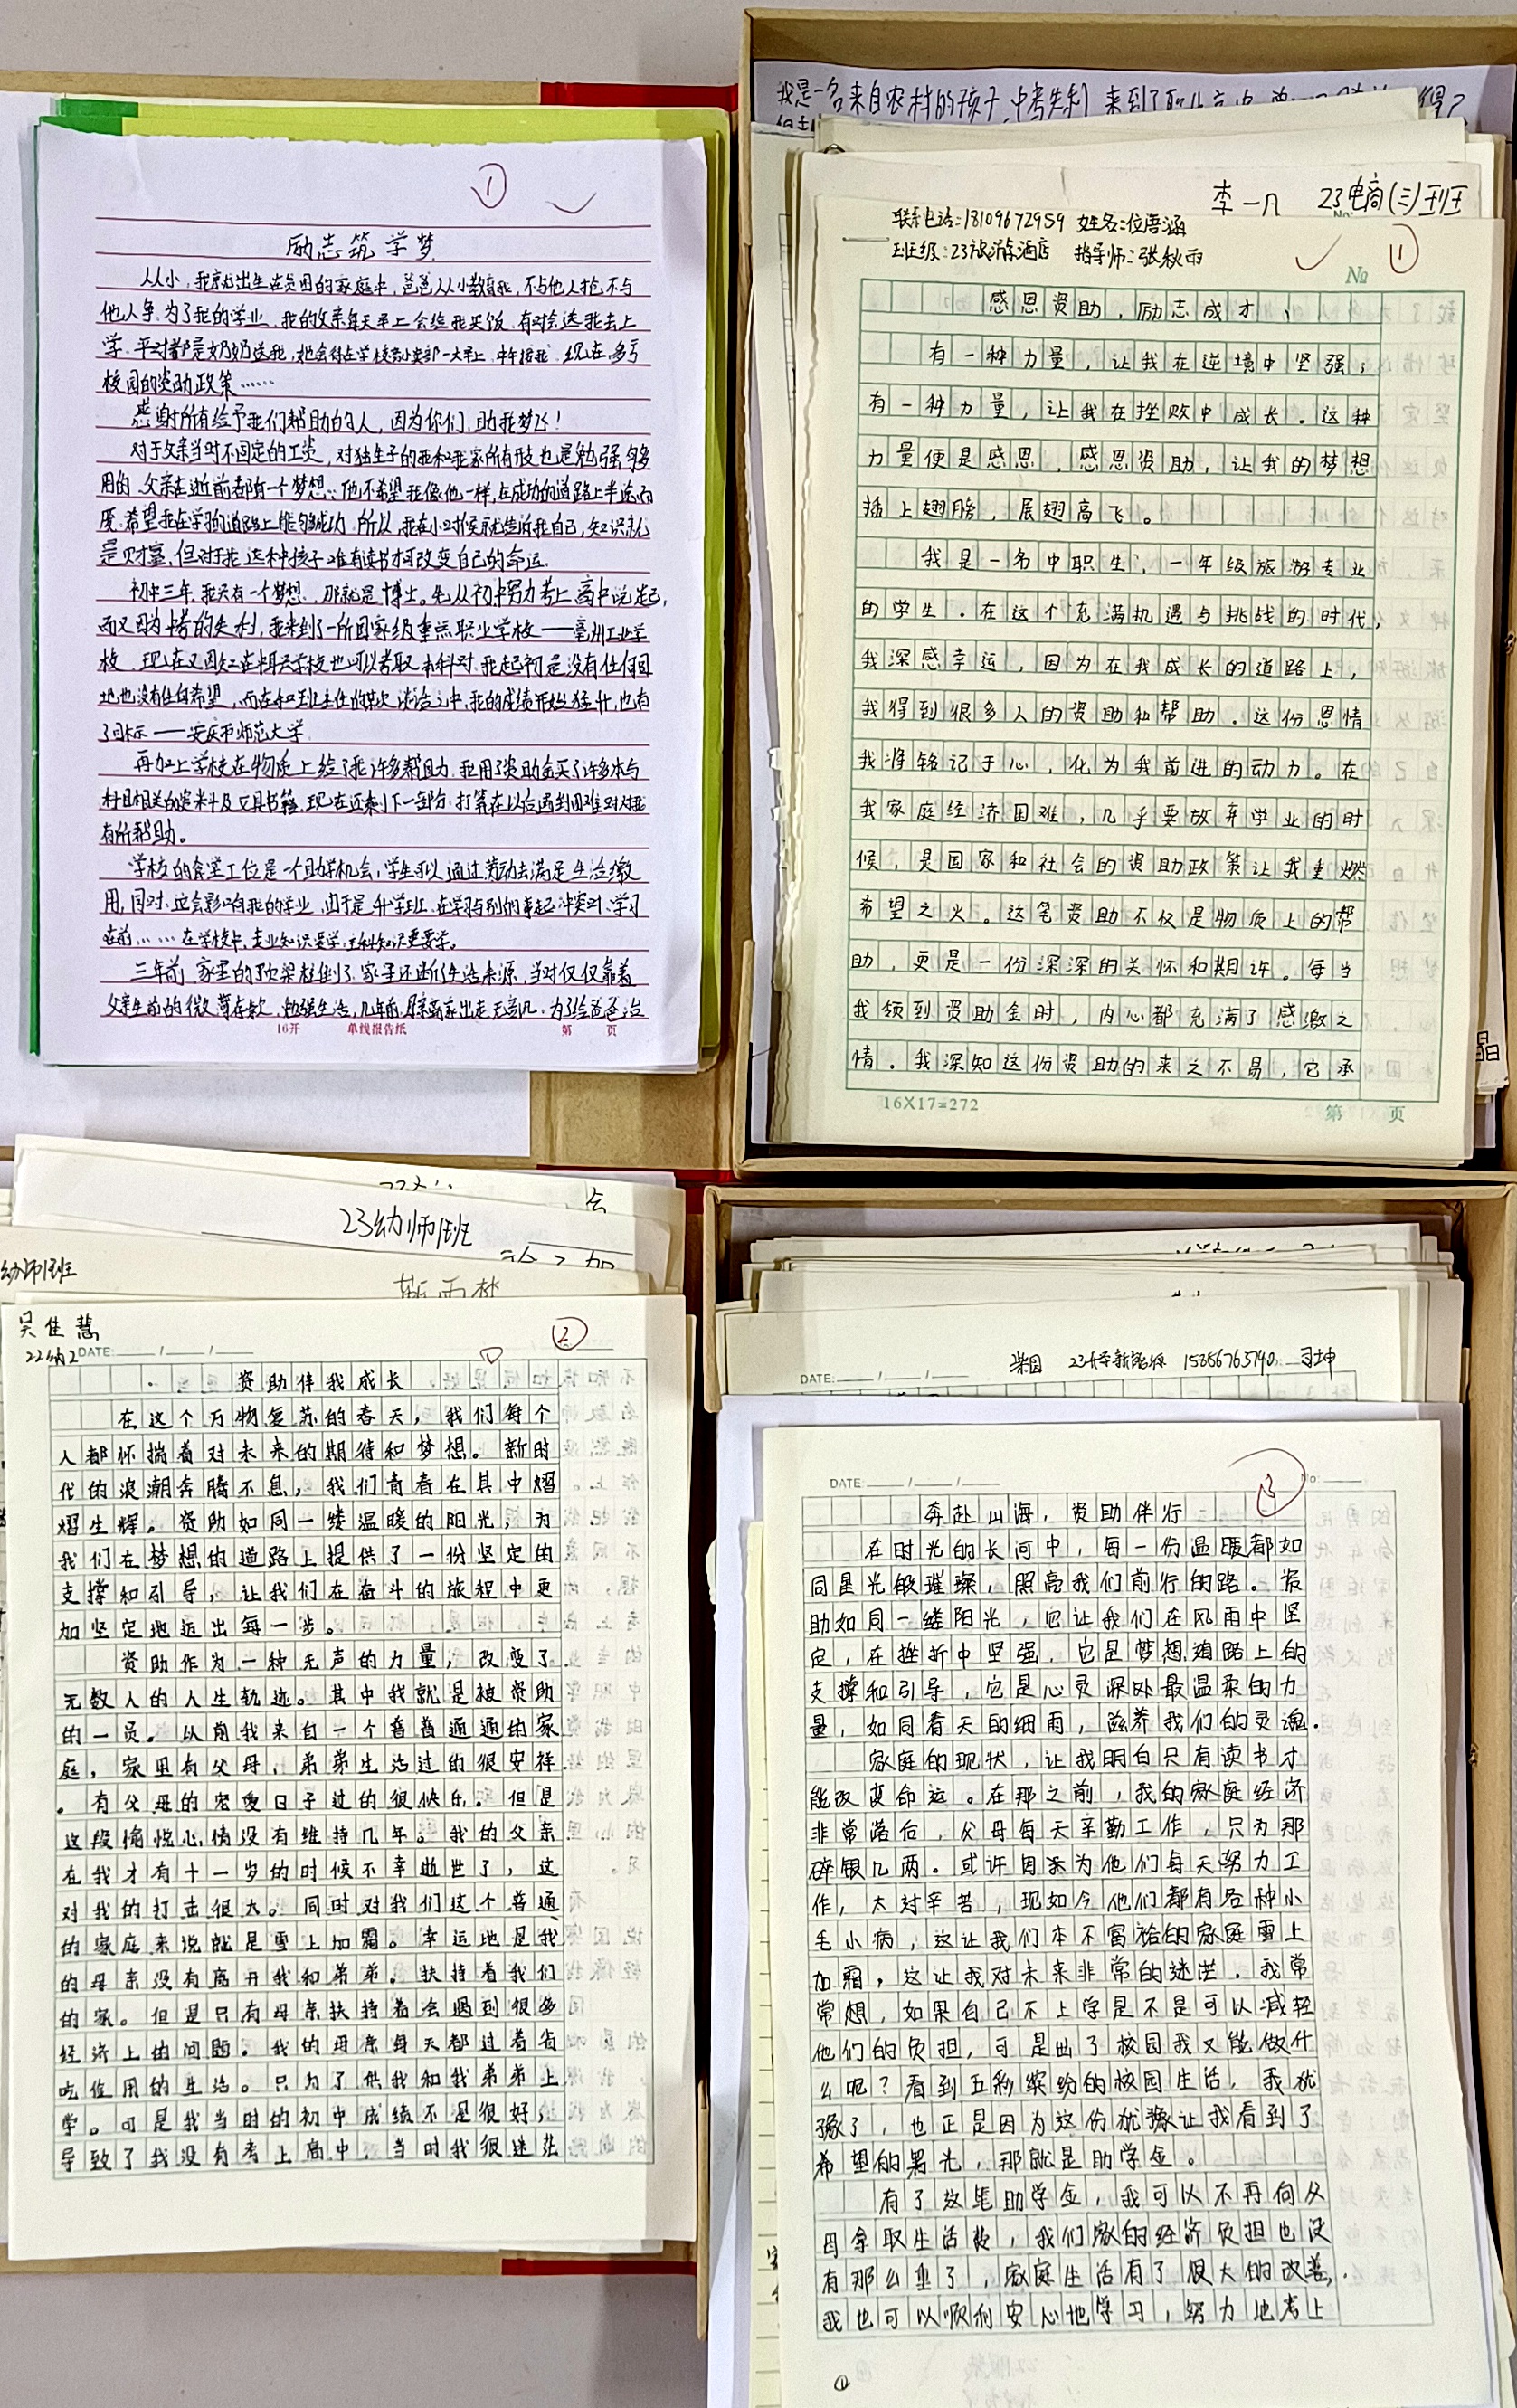 ①
励志筑学梦
从小,我就出生在贫困的家庭中,爸爸从小教育我,不与他人抢不与
他人争,为了我的学业,我的父亲每天早上会给我买饭,有时会送我去上
学,平时都是奶奶送我,她会待在学校旁小卖部一大早上,中午接我,现在,多亏
校园的资助政策……
感谢所有给予我们帮助的人,因为你们,助我梦飞!
对于父亲当时不固定的工资,对独生子的我和我家所有开支也是勉强够
用的,父亲在逝前都有一个梦想:他不希望我像他一样,在成功的道路上半途而
废,希望我在学习的道路上能够成功,所以,我在小时候就告诉我自己,知识就
是财富,但对于我这种孩子唯有读书才可改变自己的命运.
初中三年,我只有一个梦想,那就是博士。先从初中努力考上高中说起,
而又因为中考的失利,我来到了一所国家级重点职业学校——亳州工业学
校,现在又因知在中职学校也可以考取本科时,我起初是没有任何目
地也没有任何希望,而在和班主任的某次谈话之中,我的成绩开始猛升,也有
了目标——安庆市师范大学
再加上学校在物质上给了我许多帮助,我用了资助金买了许多本与
科目相关的资料及文具书籍,现在还剩下一部分,打算在以后遇到困难时对我
有所帮助。
学校的食堂工位是一个助学机会,学生可以通过劳动去满足生活缴
用,同时,这会影响我的学业,由于是升学班,在学习与别的事起冲突时,学习
在前……在学校中,专业知识要学,主科知识更要学。
三年前,家里的顶梁柱倒了,家里还断了生活来源,当时仅仅靠着
父亲生前的微薄存款,勉强生活,几年前,母亲离家出走无音讯,为了给爸爸治
16开 单线报告纸 第 页
我是一名来自农村的孩子,中考失利,来到了职业高中
李一凡 23电商(三)班
联系电话:18109672959 姓名:位语涵
班级:23旅游酒店 指导师:张秋雨
① №
感恩资助,励志成才
有一种力量,让我在逆境中坚强;
有一种力量,让我在挫败中成长.这种
力量便是感恩,感恩资助,让我的梦想
插上翅膀,展翅高飞。
我是一名中职生,一年级旅游专业
的学生.在这个充满机遇与挑战的时代,
我深感幸运,因为在我成长的道路上,
我得到很多人的资助和帮助.这份恩情
我将铭记于心,化为我前进的动力。在
我家庭经济困难,几乎要放弃学业的时
候,是国家和社会的资助政策让我重燃
希望之火。这笔资助不仅是物质上的帮
助,更是一份深深的关怀和期许。每当
我领到资助金时,内心都充满了感激之
情.我深知这份资助的来之不易,它承
16X17=272 第 页
23幼师1班
幼师1班
吴佳慧
22幼2 DATE: / /
②
资助伴我成长
在这个万物复苏的春天,我们每个
人都怀揣着对未来的期待和梦想。新时
代的浪潮奔腾不息,我们青春在其中熠
熠生辉。资助如同一缕温暖的阳光,为
我们在梦想的道路上提供了一份坚定的
支撑和引导,让我们在奋斗的旅程中更
加坚定地迈出每一步。
资助作为一种无声的力量,改变了
无数人的人生轨迹。其中我就是被资助
的一员。以前我来自一个普普通通的家
庭,家里有父母,弟弟生活过的很安祥
。有父母的宠爱日子过的很快乐。但是
这段愉悦心情没有维持几年。我的父亲
在我才有十一岁的时候不幸逝世了,这
对我的打击很大。同时对我们这个普通
的家庭来说就是雪上加霜。幸运地是我
的母亲没有离开我和弟弟。扶持着我们
的家。但是只有母亲扶持着会遇到很多
经济上的问题。我的母亲每天都过着省
吃俭用的生活。只为了供我和我弟弟上
学。可是我当时的初中成绩不是很好,
导致了我没有考上高中,当时我很迷茫
DATE: / /
DATE: / / No:
③
奔赴山海,资助伴行
在时光的长河中,每一份温暖都如
同星光般璀璨,照亮我们前行的路。资
助如同一缕阳光,它让我们在风雨中坚
定,在挫折中坚强,它是梦想道路上的
支撑和引导,它是心灵深处最温柔的力
量,如同春天的细雨,滋养我们的灵魂.
家庭的现状,让我明白只有读书才
能改变命运。在那之前,我的家庭经济
非常落后,父母每天辛勤工作,只为那
碎银几两.或许因为他们每天努力工
作,太过辛苦,现如今他们都有各种小
毛小病,这让我们本不富裕的家庭雪上
加霜,这让我对未来非常的迷茫.我常
常想,如果自己不上学是不是可以减轻
他们的负担,可是出了校园我又能做什
么呢?看到五彩缤纷的校园生活,我犹
豫了,也正是因为这份犹豫让我看到了
希望的曙光,那就是助学金。
有了这笔助学金,我可以不再向父
母拿取生活费,我们家的经济负担也没
有那么重了,家庭生活有了很大的改善,
我也可以顺利安心地学习,努力地考上